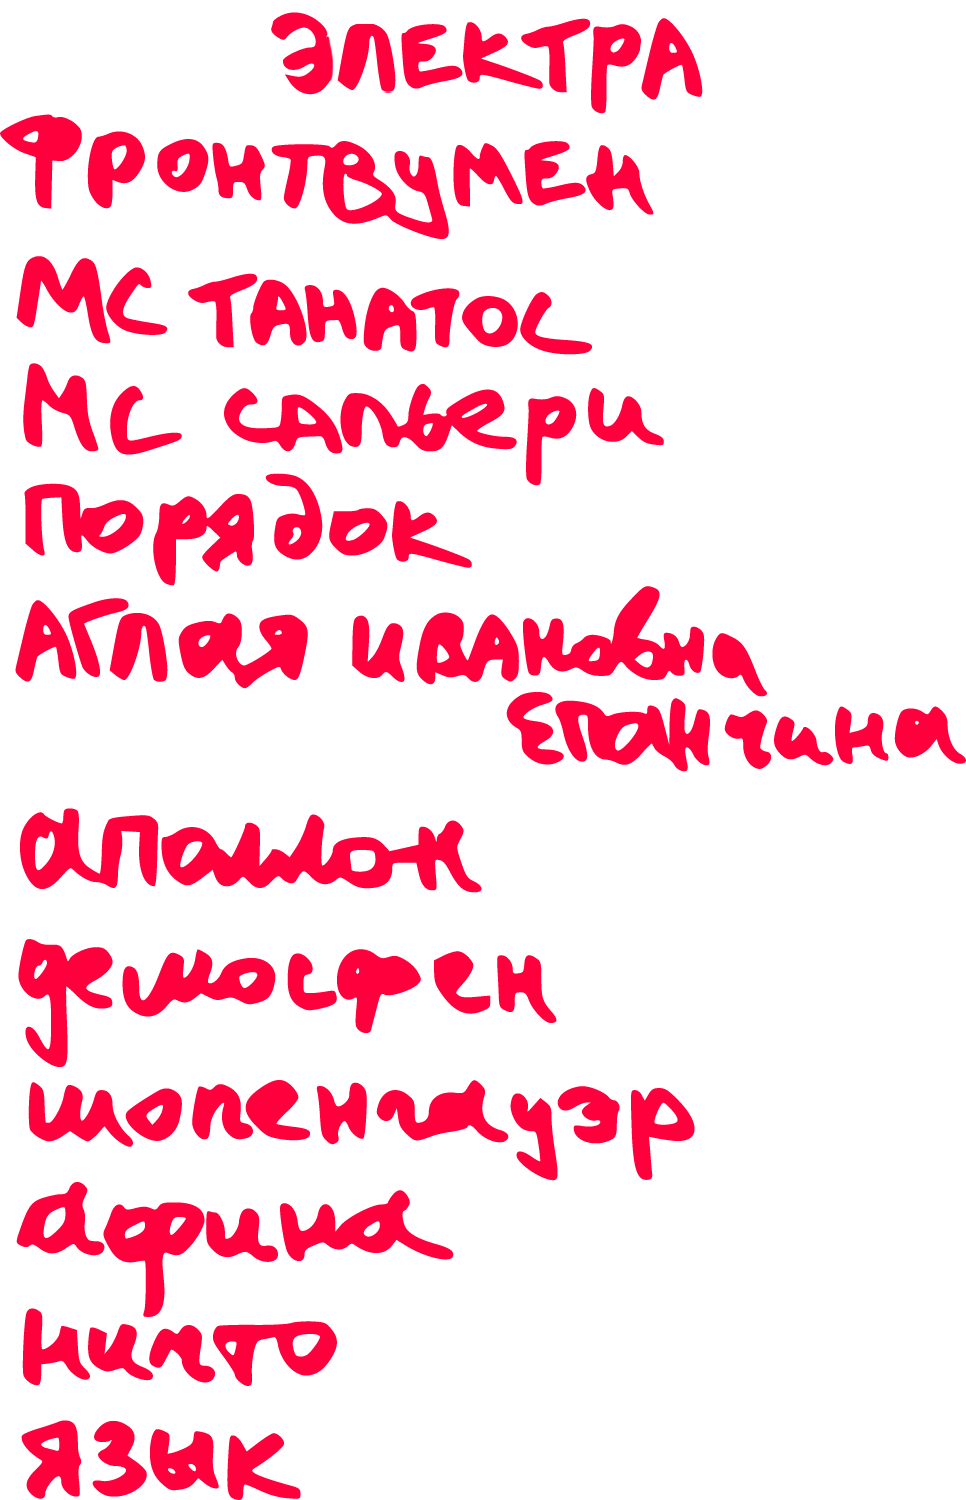 ЭЛЕКТРА
ФРОНТВУМЕН
МС ТАНАТОС
МС САПЬЕРИ
ПОРЯДОК
АГЛАЯ ИВАНОВНА
ЕПАНЧИНА
аполлон
демосфен
шопенгауэр
афина
ничто
язык